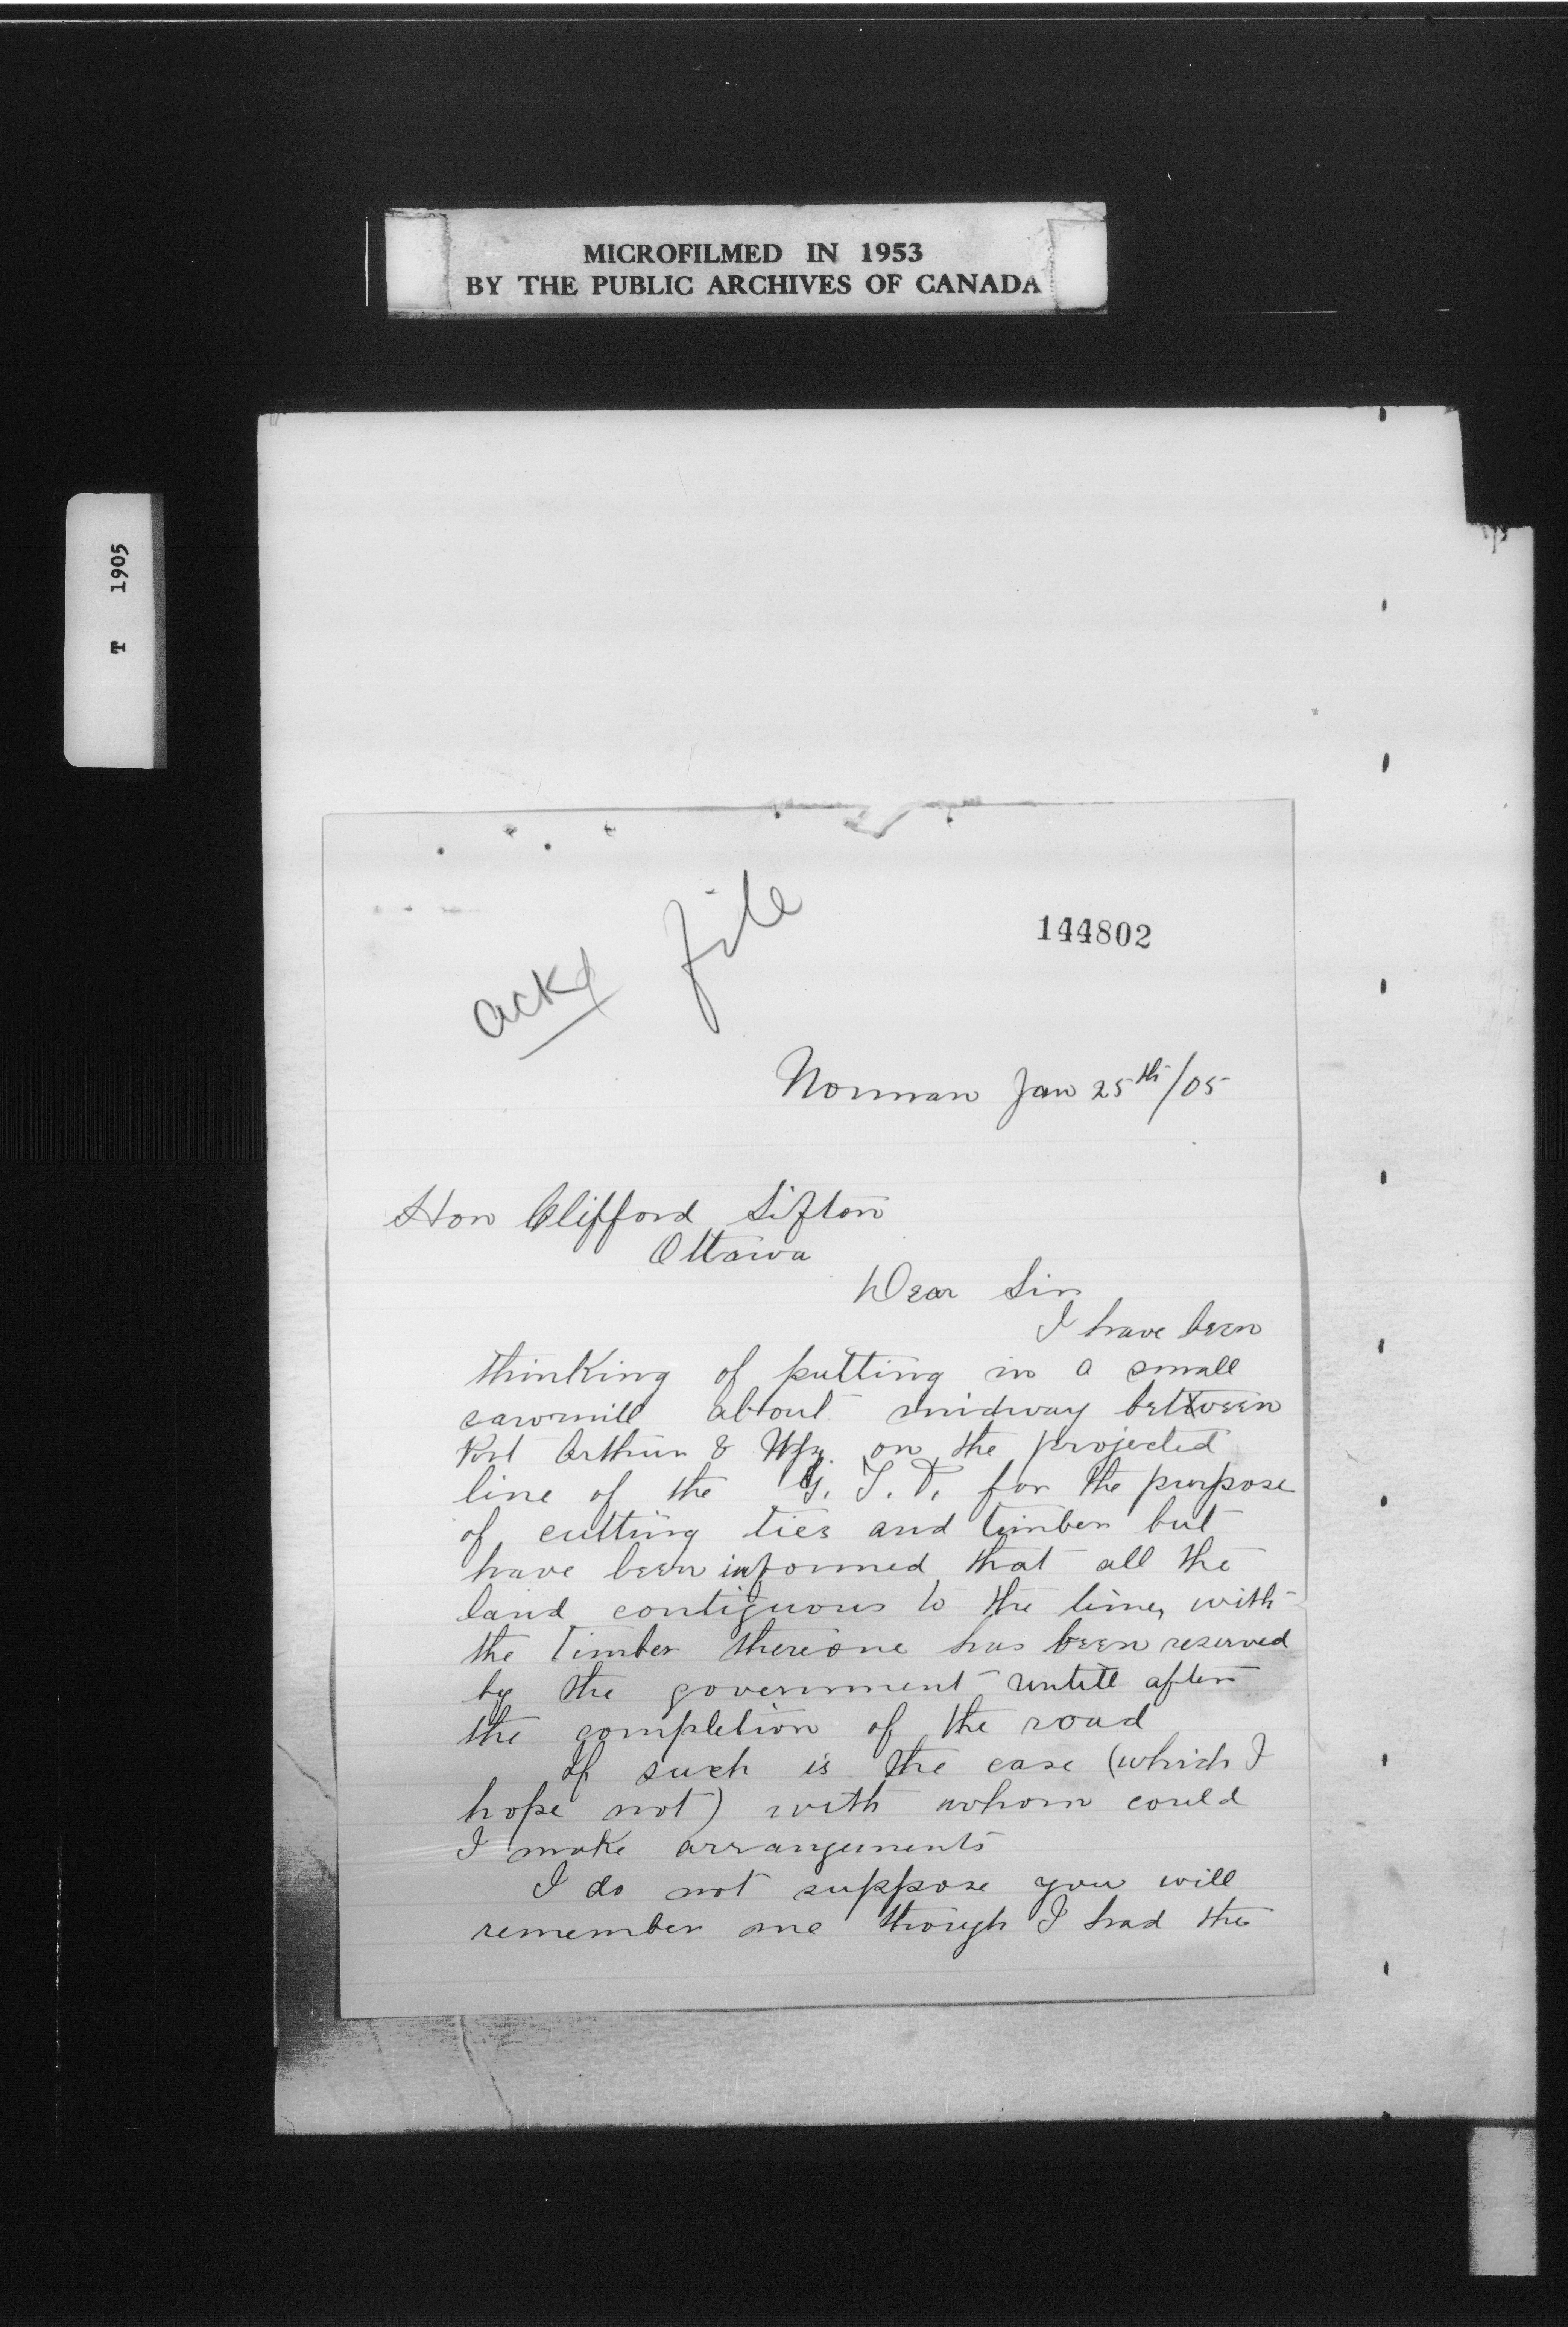 MICROFILMED IN 1953
BY THE PUBLIC ARCHIVES OF CANADA
T 1905
ackd file
144802
Norman Jan 25th/05
Hon Clifford Sifton
Ottawa
Dear Sir
I have been
thinking of putting in a small
sawmill about midway between
Port Arthur & Wpg. on the projected
line of the G. T. P. for the purpose
of cutting ties and timber but
have been informed that all the
land contiguous to the line, with
the timber thereone has been reserved
by the government untill after
the completion of the road
If such is the case (which I
hope not) with whom could
I make arrangements
I do not suppose you will
remember me though I had the